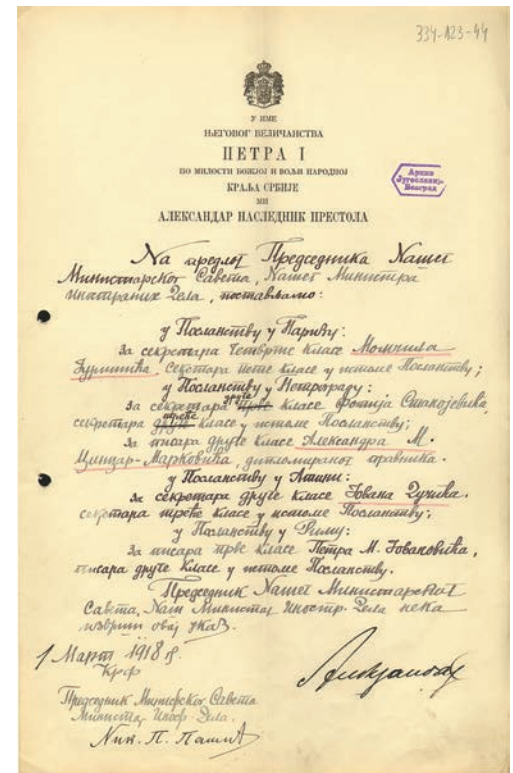 334-123-44
У ИМЕ
ЊЕГОВОГ ВЕЛИЧАНСТВА
ПЕТРА I
ПО МИЛОСТИ БОЖЈОЈ И ВОЉИ НАРОДНОЈ
КРАЉА СРБИЈЕ
МИ
АЛЕКСАНДАР НАСЛЕДНИК ПРЕСТОЛА
Архив
Југославије
Београд
На предлог Председника Нашег
Министарског Савета, Нашег Министра
иностраних дела, постављамо:
у Посланству у Паризу:
За секретара четвртe класе Момчила
Јуришића, секретара пете класе у истоме Посланству;
у Посланству у Петрограду:
За секретара друге класе Фотија Станојевића,
секретара треће класе у истоме Посланству;
За писара друге класе Александра М.
Цинцар-Марковића, дипломираног правника.
у Посланству у Атини:
За секретара друге класе Јована Дучића.
секретара треће класе у истоме Посланству;
у Посланству у Риму:
За писара прве класе Петра М. Јовановића,
писара друге класе у истоме Посланству.
Председник Нашег Министарског
Савета, Наш Министар Иностр. Дела нека
изврши овај указ.
1 Март 1918 г.
Крф
Александар
Председник Министрског Савета
Министар Иностр. Дела.
Ник. П. Пашић